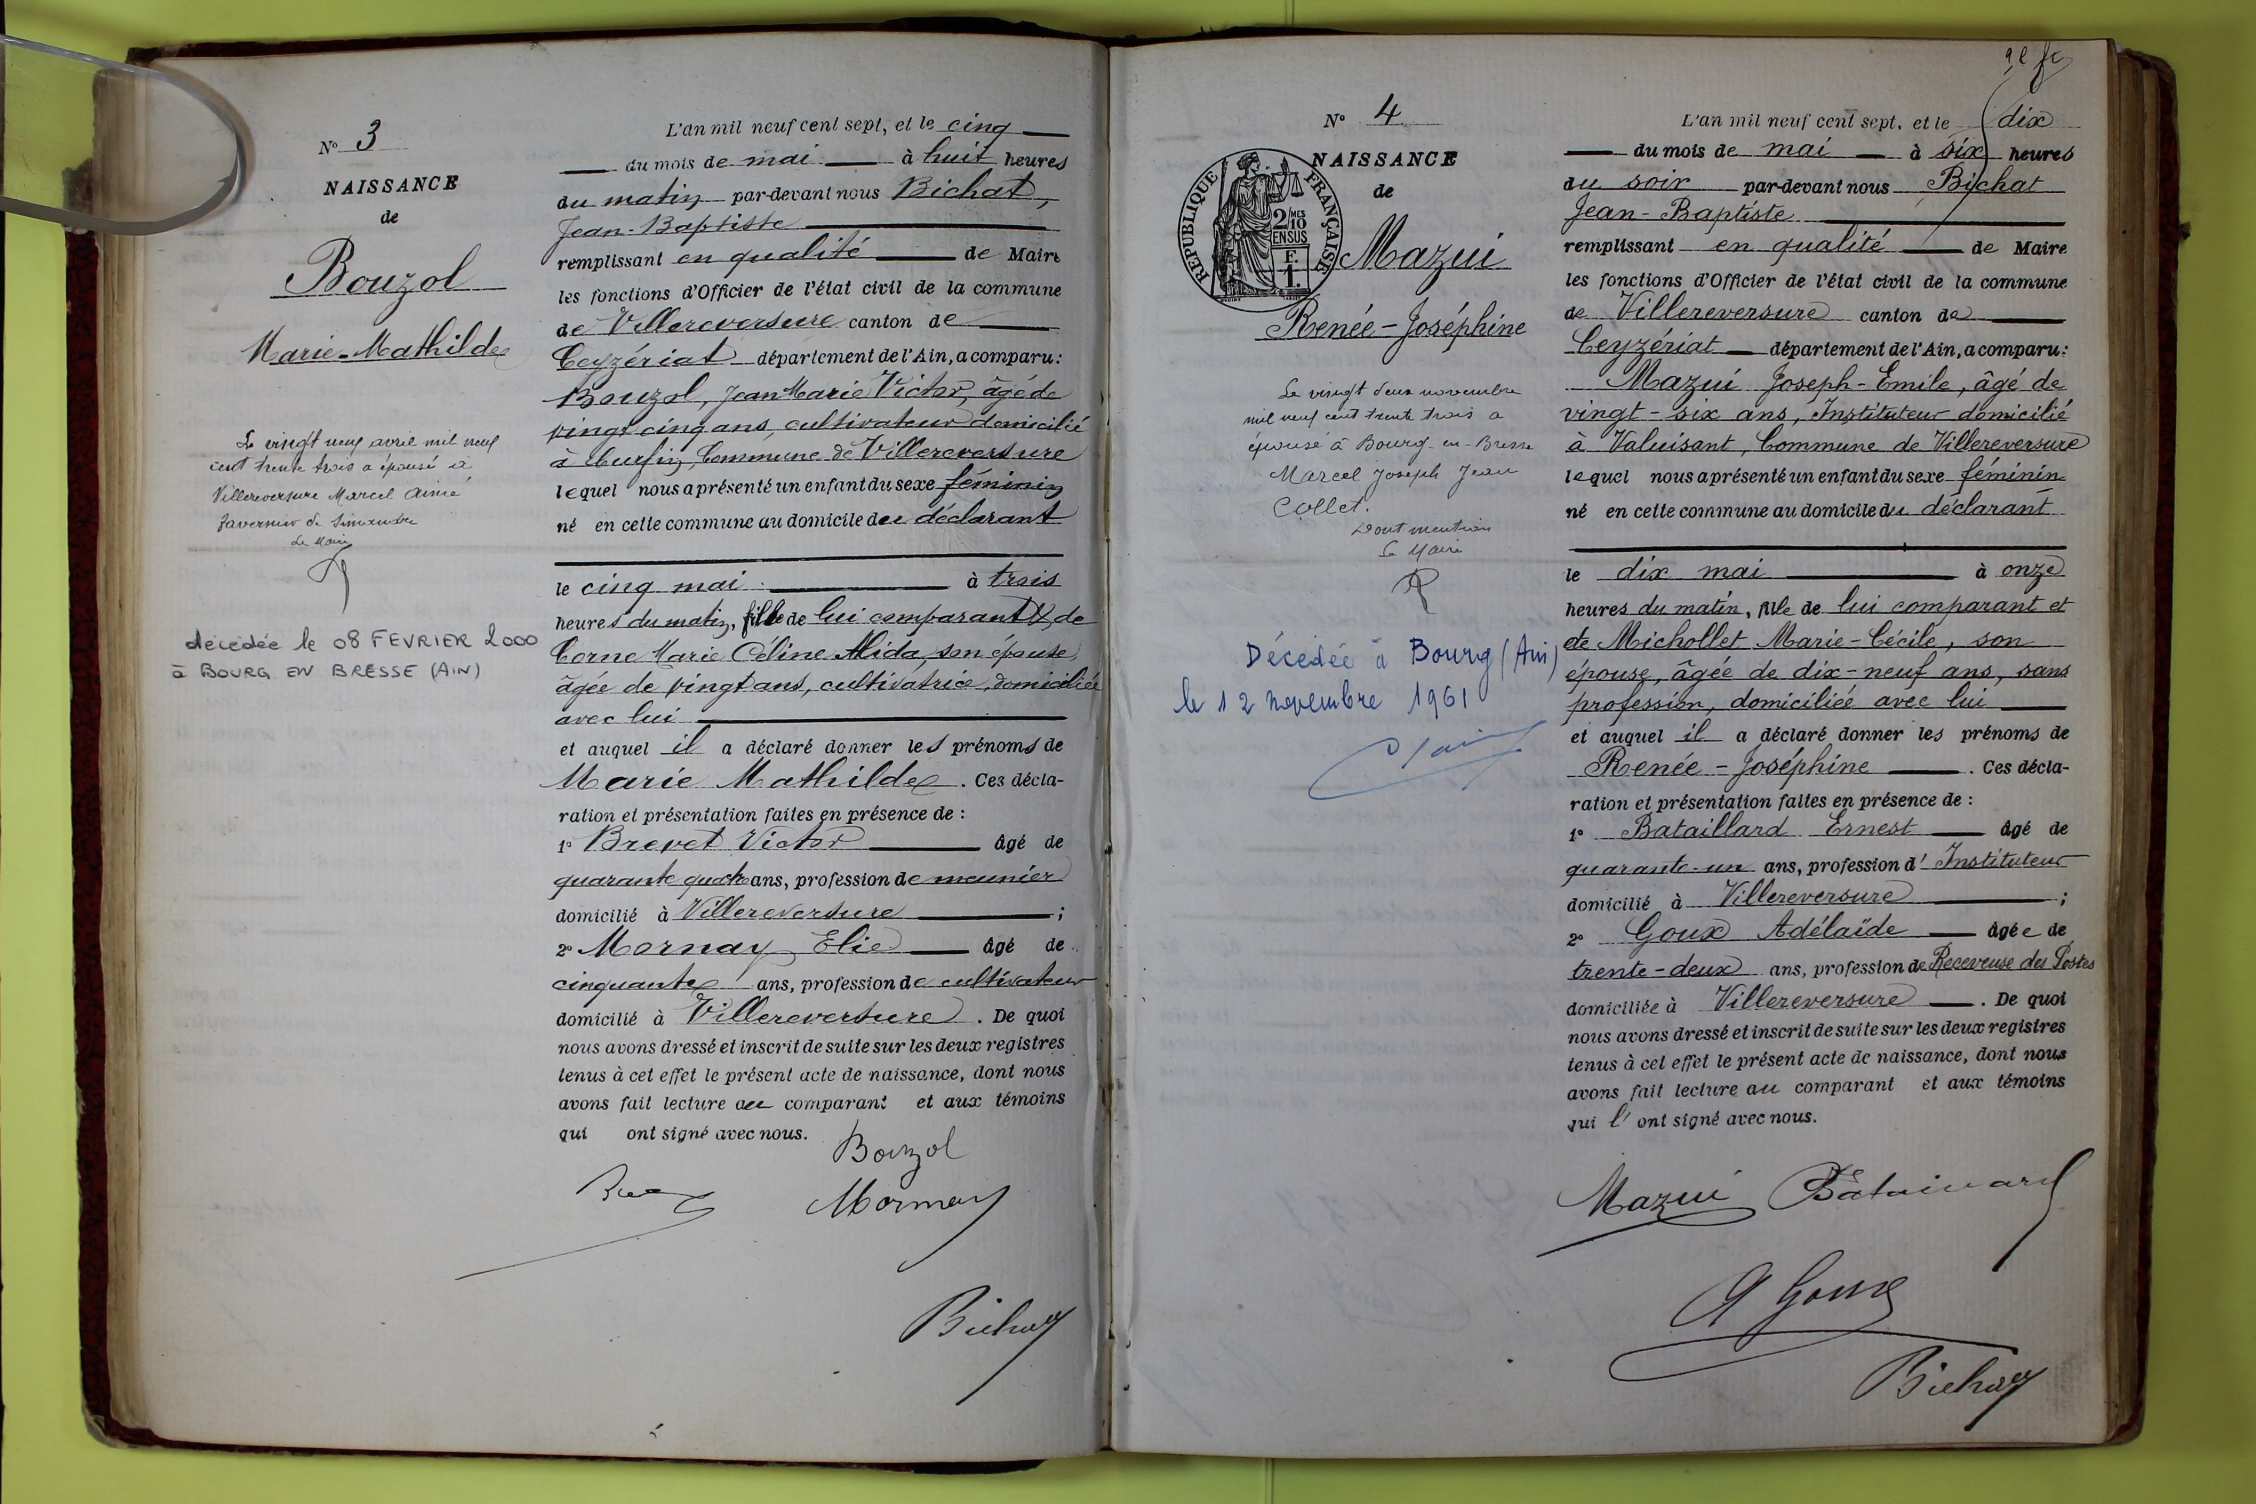 N° 3
NAISSANCE
de
Bouzol
Marie-Mathilde
Le vingt neuf avril mil neuf
cent trente trois a épousé à
Villereversure Marcel Aimé
Tavernier de Simandre
Le Maire
décédée le 08 FEVRIER 2000
à BOURG EN BRESSE (AIN)
L'an mil neuf cent sept, et le cinq
du mois de mai à huit heures
du matin par-devant nous Bichat,
Jean-Baptiste
remplissant en qualité de Maire
les fonctions d'Officier de l'état civil de la commune
de Villereversure canton de
Ceyzériat département de l'Ain, a comparu:
Bouzol, Jean Marie Victor, âgé de
vingt cinq ans, cultivateur domicilié
à Curfin, Commune de Villereversure
lequel nous a présenté un enfant du sexe féminin
né en cette commune au domicile du déclarant
le cinq mai à trois
heures du matin, fille de lui comparant & de
Corne Marie Céline Alida, son épouse,
âgée de vingt ans, cultivatrice, domiciliée
avec lui
et auquel il a déclaré donner les prénoms de
Marie Mathilde. Ces décla-
ration et présentation faites en présence de :
1° Brevet Victor âgé de
quarante quatre ans, profession de meunier
domicilié à Villereversure ;
2° Mornay Elie âgé de
cinquante ans, profession de cultivateur
domicilié à Villereversure. De quoi
nous avons dressé et inscrit de suite sur les deux registres
tenus à cet effet le présent acte de naissance, dont nous
avons fait lecture au comparant et aux témoins
qui ont signé avec nous.
Bouzol
Mornay
Bichat
2e fe
N° 4
NAISSANCE
de
REPUBLIQUE FRANÇAISE
2/10 MES
EN SUS
F.
1.
Mazui
Renée-Joséphine
Le vingt deux novembre
mil neuf cent trente trois a
épousé à Bourg-en-Bresse
Marcel Joseph Jean
Collet.
Dont mention
Le Maire
Décédée à Bourg (Ain)
le 12 novembre 1961
L'an mil neuf cent sept, et le dix
du mois de mai à six heures
du soir par-devant nous Bichat
Jean-Baptiste
remplissant en qualité de Maire
les fonctions d'Officier de l'état civil de la commune
de Villereversure canton de
Ceyzériat département de l'Ain, a comparu:
Mazui Joseph-Emile, âgé de
vingt-six ans, Instituteur domicilié
à Valuisant, Commune de Villereversure
lequel nous a présenté un enfant du sexe féminin
né en cette commune au domicile du déclarant
le dix mai à onze
heures du matin, fille de lui comparant et
de Michollet Marie-Cécile, son
épouse, âgée de dix-neuf ans, sans
profession, domiciliée avec lui
et auquel il a déclaré donner les prénoms de
Renée-Joséphine. Ces décla-
ration et présentation faites en présence de :
1° Bataillard Ernest âgé de
quarante-un ans, profession d'Instituteur
domicilié à Villereversure ;
2° Goux Adélaïde âgée de
trente-deux ans, profession de Receveuse des Postes
domiciliée à Villereversure. De quoi
nous avons dressé et inscrit de suite sur les deux registres
tenus à cet effet le présent acte de naissance, dont nous
avons fait lecture au comparant et aux témoins
qui l'ont signé avec nous.
Mazui Bataillard
A Goux
Bichat